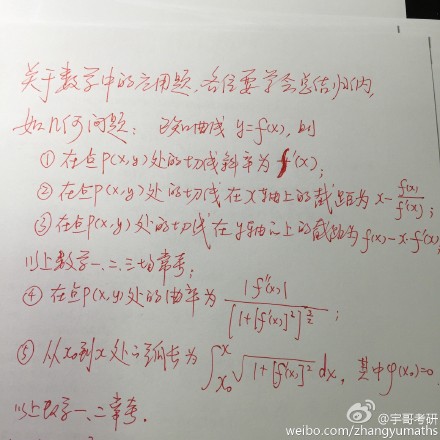 关于数学中的应用题,各位要学会总结归纳,
如几何问题: 设曲线 y=f(x), 则
① 在点P(x,y)处的切线斜率为 f'(x);
② 在点P(x,y)处的切线在x轴上的截距为 x-\frac{f(x)}{f'(x)};
③ 在点P(x,y)处的切线在y轴上的截距为 f(x)-x·f'(x),
以上数学一、二、三均常考;
④ 在点P(x,y)处的曲率为 \frac{|f''(x)|}{[1+[f'(x)]^2]^{\frac{3}{2}}};
⑤ 从x_0到x处之弧长为 \int_{x_0}^{x}\sqrt{1+[f'(x)]^2}dx, 其中φ(x_0)=0.
以上数学一、二常考.
@宇哥考研
weibo.com/zhangyumaths